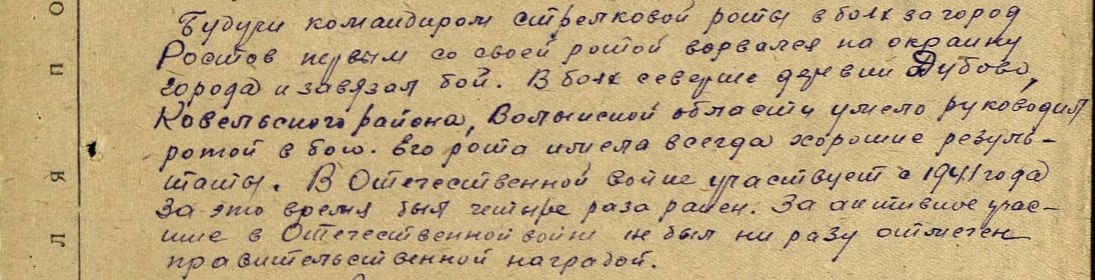 Будучи командиром стрелковой роты в боях за город
Ростов первым со своей ротой ворвался на окраину
города и завязал бой. В боях севернее деревни Дубово,
Ковельского района, Волынской области умело руководил
ротой в бою. Его рота имела всегда хорошие резуль-
таты. В Отечественной войне участвует с 1941 года
За это время был четыре раза ранен. За активное учас-
тие в Отечественной войне не был ни разу отмечен
правительственной наградой.
О
П
Я
Л